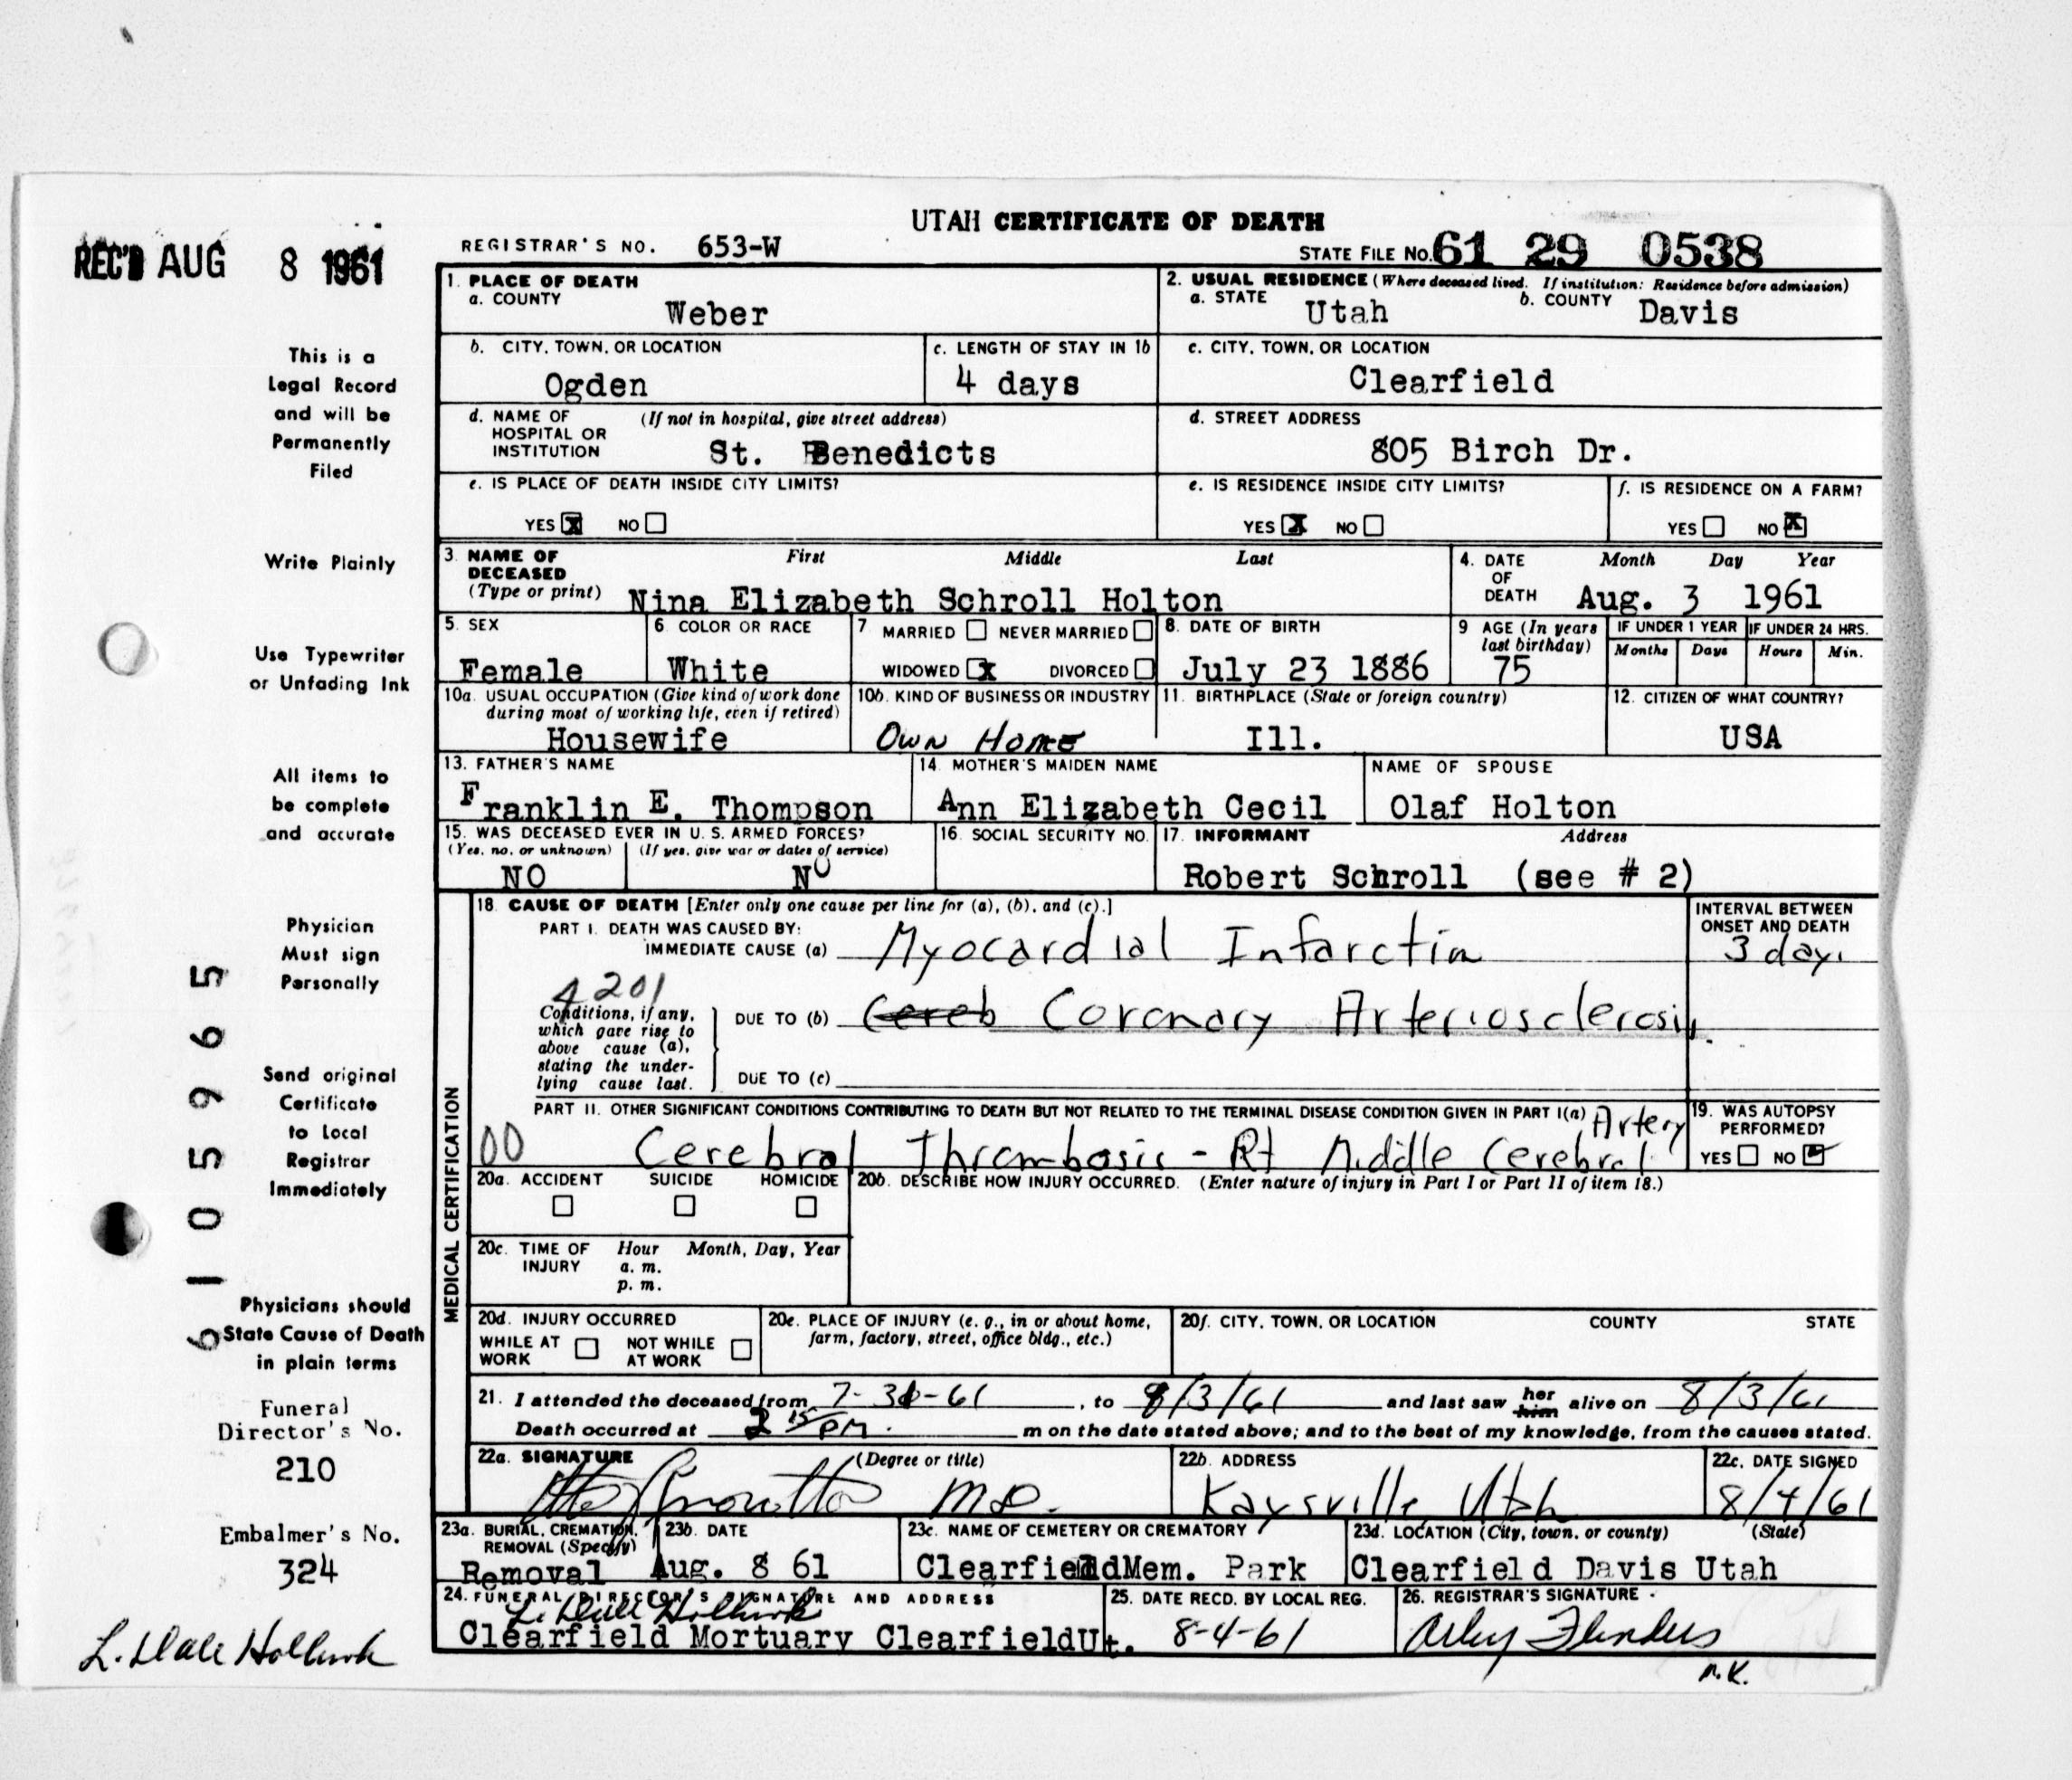 UTAH CERTIFICATE OF DEATH
REC'D AUG 8 1961
REGISTRAR'S NO. 653-W
STATE FILE NO. 61 29 0538
1. PLACE OF DEATH
a. COUNTY
Weber
2. USUAL RESIDENCE (Where deceased lived. If institution: Residence before admission)
a. STATE Utah b. COUNTY Davis
b. CITY, TOWN, OR LOCATION
Ogden
c. LENGTH OF STAY IN 1b
4 days
c. CITY, TOWN, OR LOCATION
Clearfield
d. NAME OF HOSPITAL OR INSTITUTION (If not in hospital, give street address)
St. Benedicts
d. STREET ADDRESS
805 Birch Dr.
e. IS PLACE OF DEATH INSIDE CITY LIMITS?
YES X NO
e. IS RESIDENCE INSIDE CITY LIMITS?
YES X NO
f. IS RESIDENCE ON A FARM?
YES NO X
3. NAME OF DECEASED (Type or print) First Middle Last
Nina Elizabeth Schroll Holton
4. DATE OF DEATH Month Day Year
Aug. 3 1961
5. SEX
Female
6. COLOR OR RACE
White
7. MARRIED NEVER MARRIED
WIDOWED X DIVORCED
8. DATE OF BIRTH
July 23 1886
9 AGE (In years last birthday)
75
IF UNDER 1 YEAR
Months Days
IF UNDER 24 HRS.
Hours Min.
10a. USUAL OCCUPATION (Give kind of work done during most of working life, even if retired)
Housewife
10b. KIND OF BUSINESS OR INDUSTRY
Own Home
11. BIRTHPLACE (State or foreign country)
Ill.
12. CITIZEN OF WHAT COUNTRY?
USA
13. FATHER'S NAME
Franklin E. Thompson
14. MOTHER'S MAIDEN NAME
Ann Elizabeth Cecil
NAME OF SPOUSE
Olaf Holton
15. WAS DECEASED EVER IN U. S. ARMED FORCES?
(Yes, no, or unknown) (If yes, give war or dates of service)
NO NO
16. SOCIAL SECURITY NO.
17. INFORMANT Address
Robert Schroll (see # 2)
MEDICAL CERTIFICATION
18. CAUSE OF DEATH [Enter only one cause per line for (a), (b), and (c).]
PART I. DEATH WAS CAUSED BY:
IMMEDIATE CAUSE (a) Myocardial Infarction
INTERVAL BETWEEN ONSET AND DEATH
3 days
4201
Conditions, if any, which gave rise to above cause (a), stating the underlying cause last.
DUE TO (b) Cereb Coronary Arteriosclerosis
DUE TO (c)
PART II. OTHER SIGNIFICANT CONDITIONS CONTRIBUTING TO DEATH BUT NOT RELATED TO THE TERMINAL DISEASE CONDITION GIVEN IN PART I(a)
00 Cerebral Thrombosis - Rt Middle Cerebral Artery
19. WAS AUTOPSY PERFORMED?
YES NO
20a. ACCIDENT SUICIDE HOMICIDE
20b. DESCRIBE HOW INJURY OCCURRED. (Enter nature of injury in Part I or Part II of item 18.)
20c. TIME OF INJURY Hour Month, Day, Year
a. m.
p. m.
20d. INJURY OCCURRED
WHILE AT WORK NOT WHILE AT WORK
20e. PLACE OF INJURY (e. g., in or about home, farm, factory, street, office bldg., etc.)
20f. CITY, TOWN, OR LOCATION COUNTY STATE
21. I attended the deceased from 7-31-61, to 8/3/61 and last saw her him alive on 8/3/61
Death occurred at 2 15 PM. m on the date stated above; and to the best of my knowledge, from the causes stated.
22a. SIGNATURE (Degree or title)
MD.
22b. ADDRESS
Kaysville, Utah
22c. DATE SIGNED
8/4/61
23a. BURIAL, CREMATION, REMOVAL (Specify)
Removal
23b. DATE
Aug. 8 61
23c. NAME OF CEMETERY OR CREMATORY
Clearfield Mem. Park
23d. LOCATION (City, town, or county) (State)
Clearfield Davis Utah
24. FUNERAL DIRECTOR'S SIGNATURE AND ADDRESS
L. Dale Holbrook
Clearfield Mortuary Clearfield Ut.
25. DATE RECD. BY LOCAL REG.
8-4-61
26. REGISTRAR'S SIGNATURE
Arley Flinders
n.K.
This is a
Legal Record
and will be
Permanently
Filed
Write Plainly
Use Typewriter
or Unfading Ink
All items to
be complete
and accurate
Physician
Must sign
Personally
Send original
Certificate
to Local
Registrar
Immediately
Physicians should
State Cause of Death
in plain terms
Funeral
Director's No.
210
Embalmer's No.
324
L. Dale Holbrook
61059655